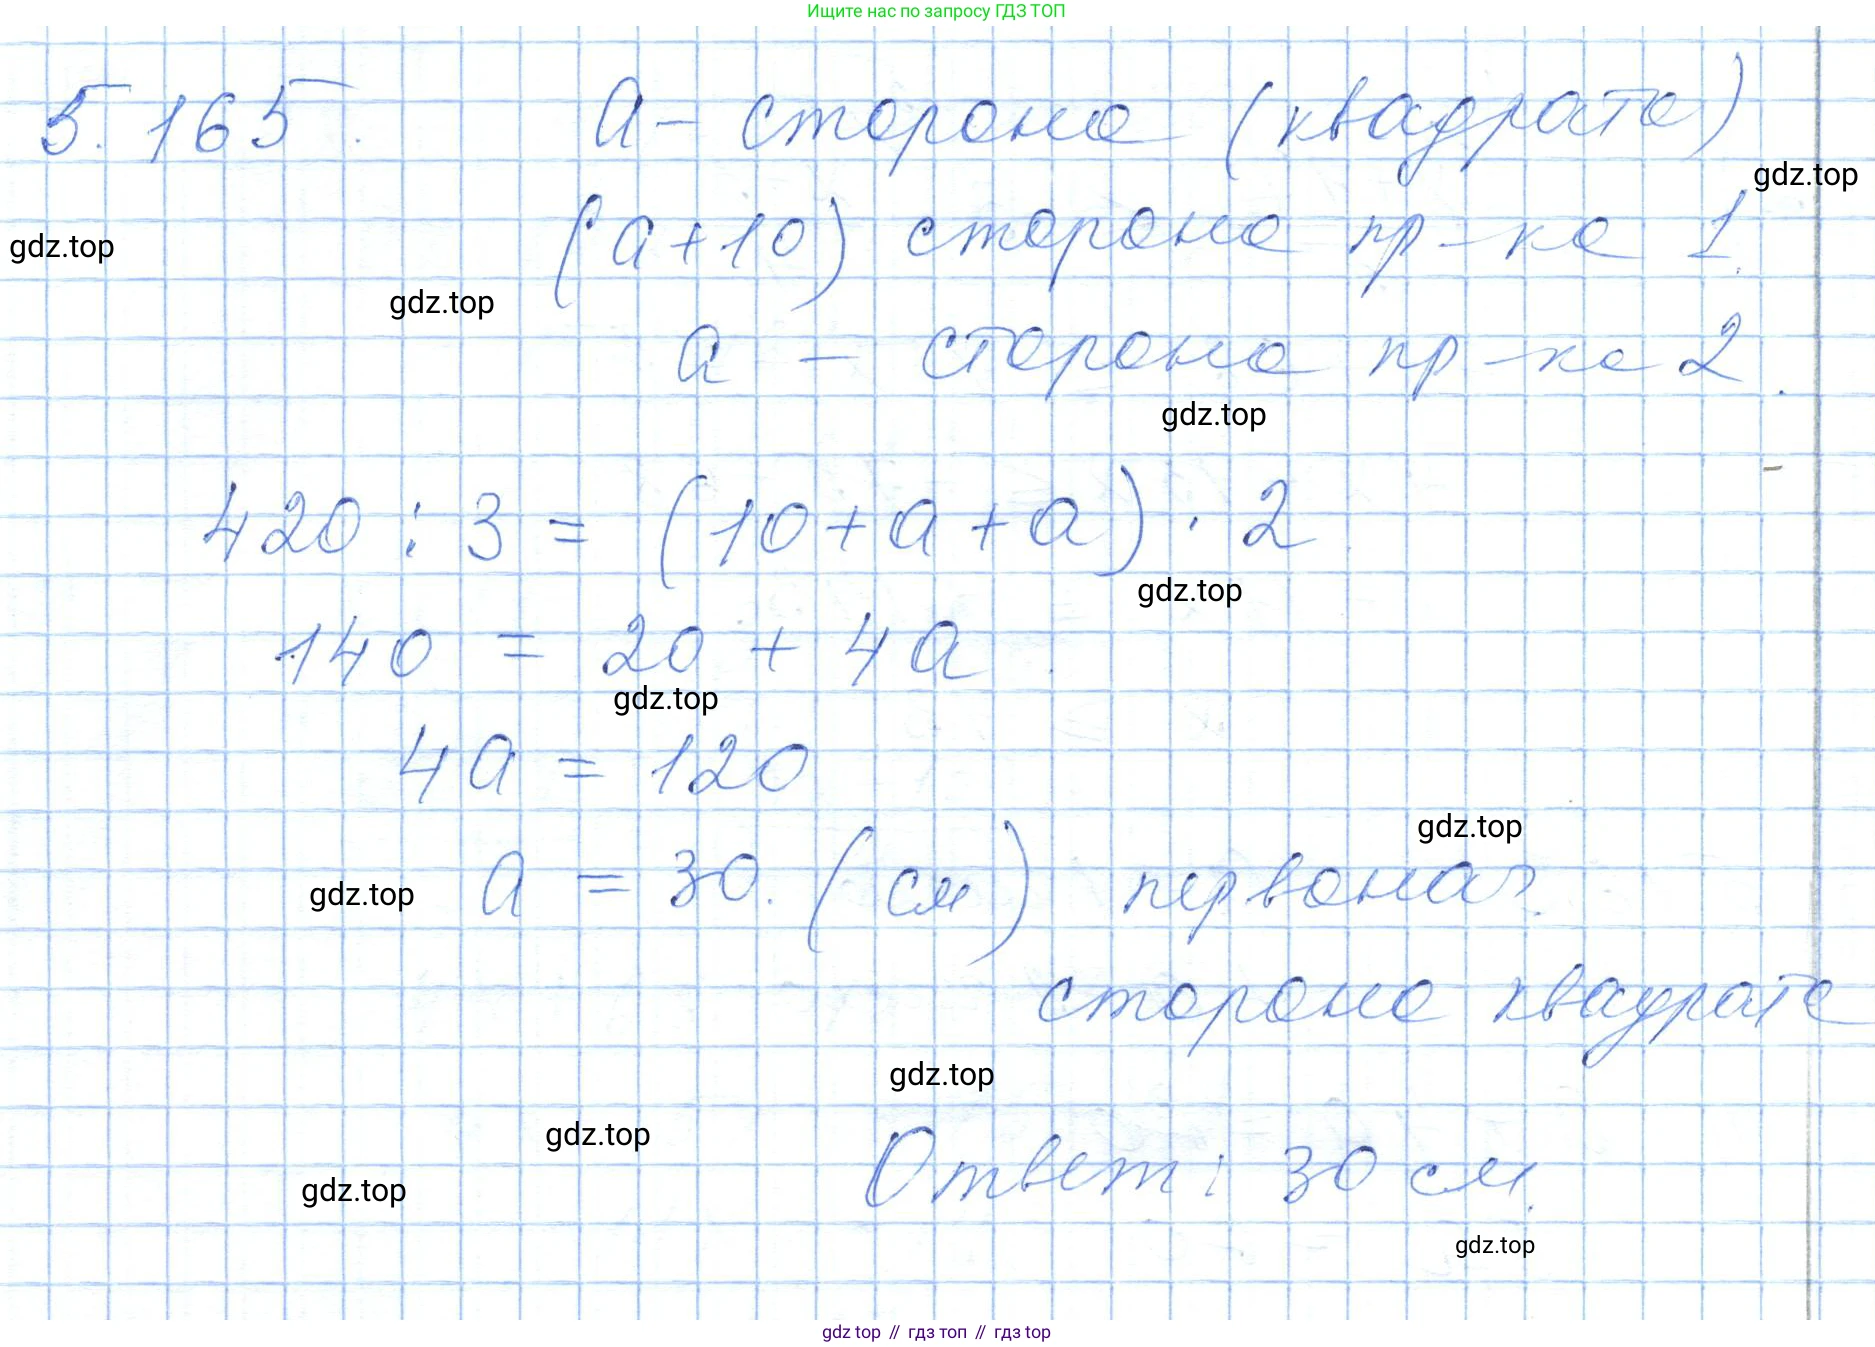 Ищите нас по запросу ГДЗ ТОП
5.165. a - сторона (квадрата)
gdz.top
(a+10) сторона пр-ка 1
gdz.top
gdz.top
a - сторона пр-ка 2.
gdz.top
420 : 3 = (10+a+a) · 2
gdz.top
140 = 20 + 4a
gdz.top
4a = 120
gdz.top
a = 30. (см) первонач.
gdz.top
сторона квадрата
gdz.top
gdz.top
Ответ: 30 см.
gdz.top
gdz.top
gdz top // гдз топ // гдз top